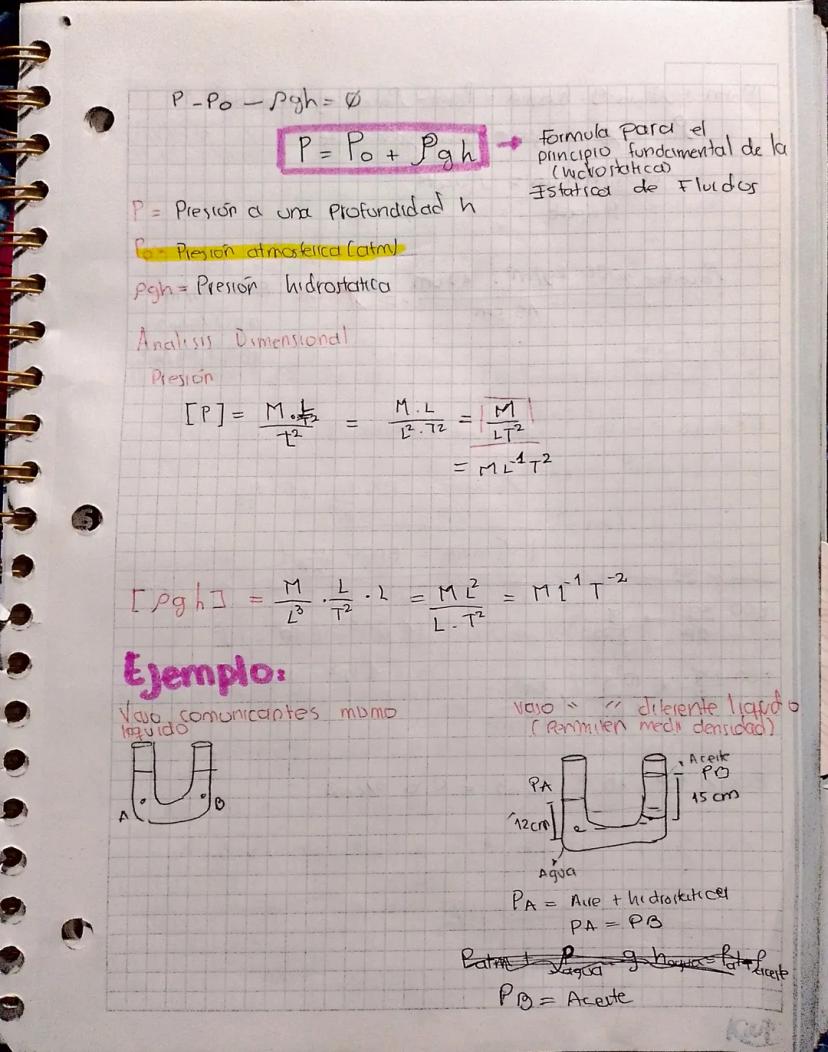 P - Po - ρgh = ∅
P = Po + ρgh → Formula para el
principio fundamental de la
(hidrostatica)
Estatica de Fluidos
P = Presión a una profundidad h
Po = Presión atmosferica (atm)
ρgh = Presión hidrostatica
Analisis Dimensional
Presión
[P] = M · L/T² / L² = M · L / L² · T² = M / LT²
= ML⁻¹T²
[ρgh] = M/L³ · L/T² · L = ML² / L · T² = ML⁻¹T⁻²
Ejemplo:
Vaso comunicantes mismo
liquido
A B
Vaso " " diferente liquido
(Permiten medir densidad)
Aceite
PA PB
12cm 15 cm
Agua
PA = Aire + hidrostatica
PA = PB
PB = Aceite